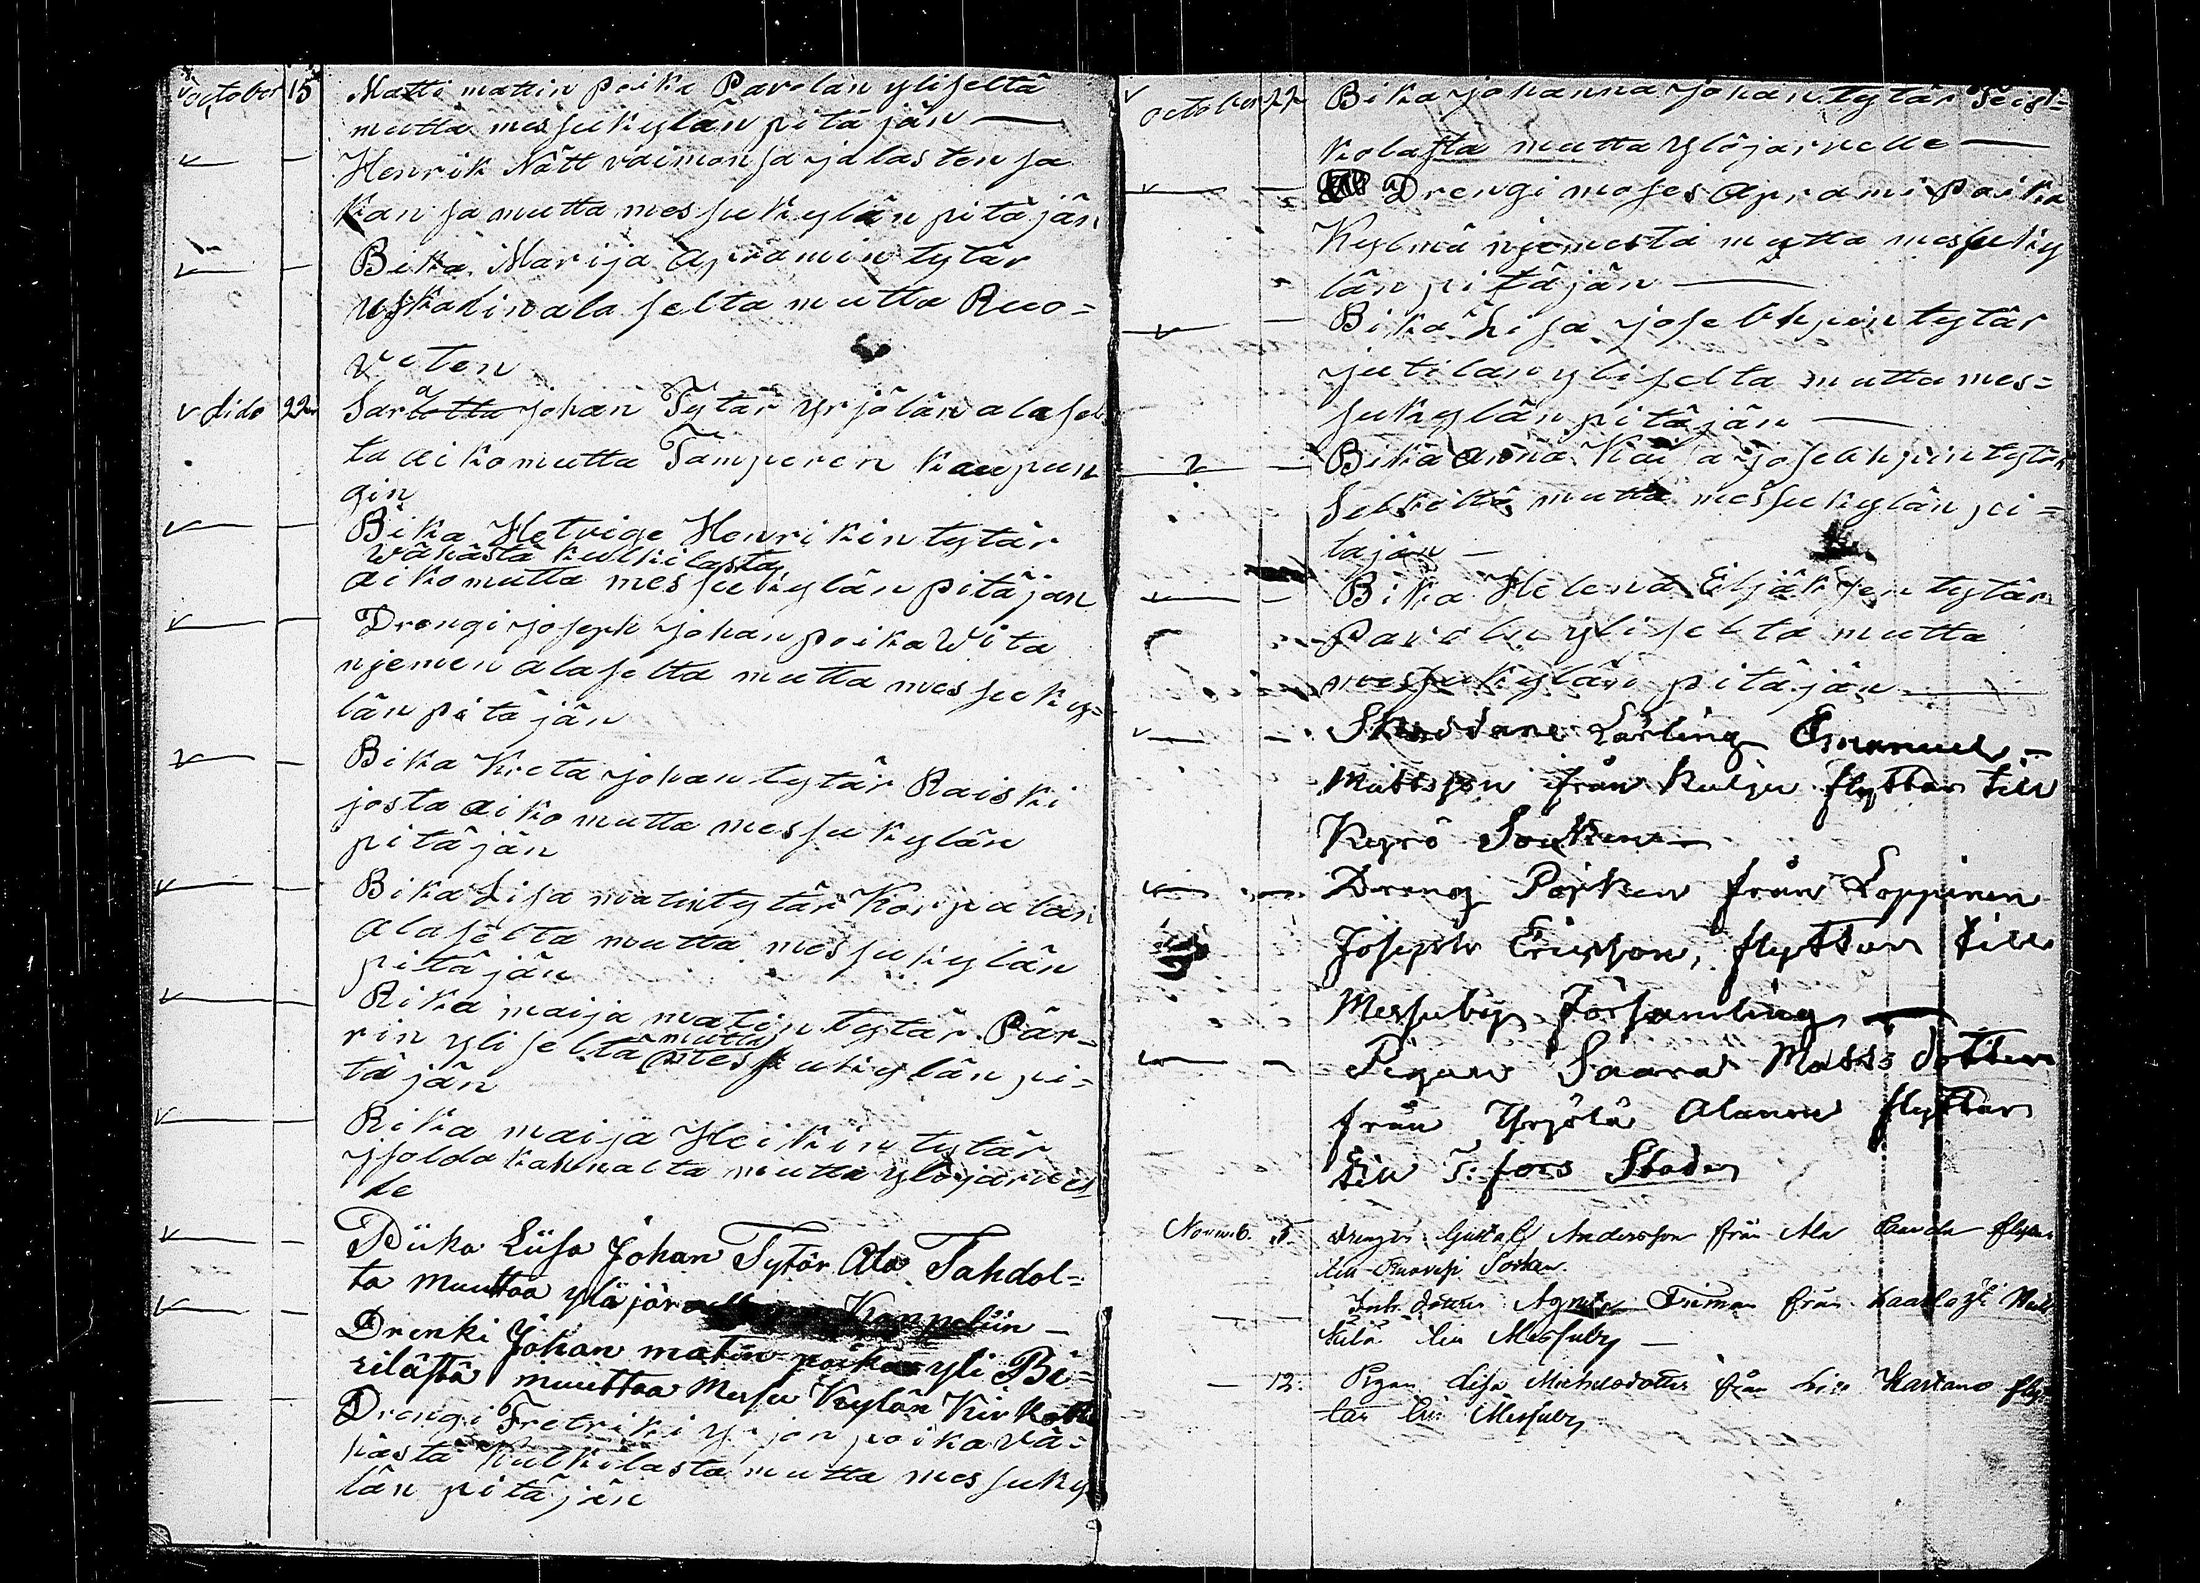 october 15 Matti mattin poika Parolan yliseltä
mutta messukylän pitäjän —
Henrik Nätt vaimonsa ja lasten sa
kansa mutta messukylän pitäjän
Bika Marija Apramin tytär
uskalin ala selta mutta Ruo=
veten
dido 22 Sara lotta johan Tytär yrjölän alasel
ta aikomutta Tamperen kaupun
gin
Bika Hetvige Henrikin tytär
vähästä kulkilasta
aikomutta messukylän pitäjän
Drengi joseph johan poika Wita
njemen alaselta mutta messuky=
län pitäjän
Bika Kreta johan tytär Raiski
josta aikomutta messukylän
pitäjän
Bika Lisa matin tytär Korpalan
alaselta mutta messukylän
pitäjän
Rika maija matin tytär Pär=
mutta
rin yliseltä messukylän pi=
täjän
Rika maija Heikin tytär
isolda kahnalta mutta ylöjärvel
le
Piika Liisa Johan Tytär Ala Tahdol=
ta muuttaa yläjär Kappeliin —
Drenki Johan matin poika yli Bi=
rilästä muuttaa Messu Kylän Kirkok
Drengi Fretriki yrjön poika vä=
hästä kulkilasta mutta messuky
län pitäjän
october 22 Bika johanna johan tytär Teis=
kolasta mutta ylöjarvelle —
Drengi moses Aprami Poika
Kylmä njemestä mutta messuky
län pitäjän —
Bika Lisa josebhpin tytär
jutilan yliselta mutta mes=
sukylän pitäjän —
Bika anna Kaisa josebhpin tytär
Selkiltä mutta messukylän pi=
täjän —
Bika Helena Eljäksen tytär
Parolan yliselta mutta
messukylän pitäjän —
Skreddare Lärling Emanuel —
Mattsson från Kulju flyttar till
Kyrö Socken —
Dreng Pojken från Loppinen
Joseph Ericsson, flyttar till
Messuby Församling —
Pigan Saara Matts dotter
från Yrjölä Alanen flyttar
till T:fors Stad
Novemb. 5. Drengen Gustaf Andersson från Ala
till Ruovesi Socken
Agnes från
till Messuby —
— 12. Pigan Lisa Michelsdotter från Kastano flyt
tar till Messuby